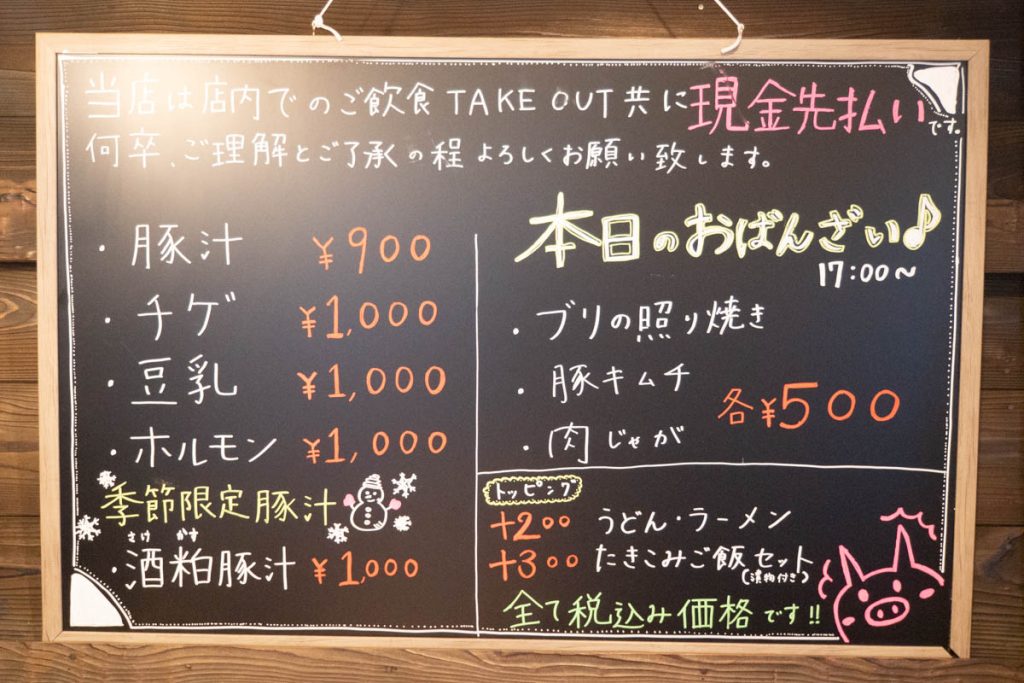 当店は店内でのご飲食 TAKE OUT 共に現金先払いです。
何卒、ご理解とご了承の程よろしくお願い致します。
・豚汁 ¥900
・チゲ ¥1,000
・豆乳 ¥1,000
・ホルモン ¥1,000
季節限定豚汁
さけ かす
・酒粕豚汁 ¥1,000
本日のおばんざい♪
17:00~
・ブリの照り焼き
・豚キムチ
各¥500
・肉じゃが
トッピング
+200 うどん・ラーメン
+300 たきこみご飯セット
(漬物付き)
全て税込み価格です!!